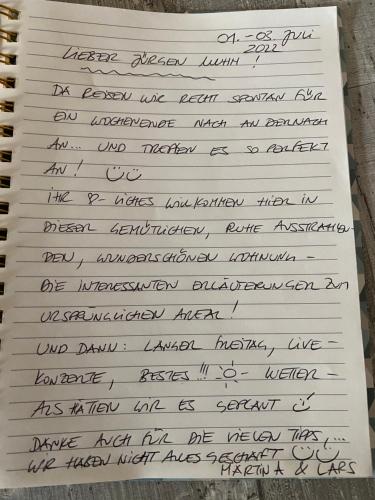 01.-03. Juli
2022
LIEBER JÜRGEN MUHH !
DA REISEN WIR RECHT SPONTAN FÜR
EIN WOCHENENDE NACH ANDERNACH
AN... UND TREFFEN ES SO PERFEKT
AN !
IHR ♡-LICHES WILLKOMMEN HIER IN
DIESER GEMÜTLICHEN, RUHE AUSSTRAHLEN-
DEN, WUNDERSCHÖNEN WOHNUNG -
DIE INTERESSANTEN ERLÄUTERUNGEN ZUM
URSPRÜNGLICHEN AREAL !
UND DANN : LANGER FREITAG, LIVE -
KONZERTE, BESTES !!! ☼ - WETTER -
ALS HÄTTEN WIR ES GEPLANT
DANKE AUCH FÜR DIE VIELEN TIPPS,...
WIR HABEN NICHT ALLES GESCHAFFT
MARTINA & LARS